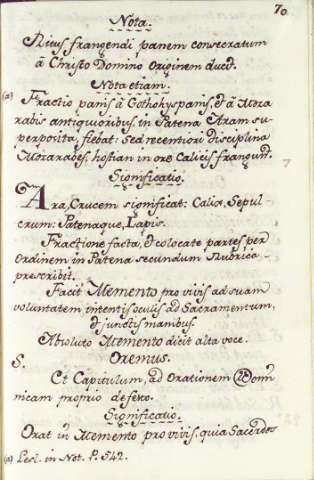 70
Nota.
Ritus frangendi panem consecratum
â Christo Domino Originem ducit.
Nota etiam.
(a) Fractio panis â Gothohyspanis, & â Mora
rabis antiquioribus, in Patena Aram su-
perposita, fiebat: Sed recentiori disciplina
Morarabes, hostiam in ore Calicis frangunt.
Significatio.
Ara, Crucem significat: Calix, Sepul-
crum: Patenaque, Lapis.
Fractione facta, & colocate partes per
Ordinem in Patena secundum Rubrica
prescribit.
Facit Memento pro vivis ad suam
voluntatem intentis oculis ad Sacramentum,
& junctis manibus.
Absoluto Memento dicit alta voce.
S. Oremus.
Et Capitulum, ad Orationem Domi
nicam proprio de festo.
Significatio.
Orat in Memento pro vivis, quia Sacerdos
(a) Lesl. in Not. P. 542.